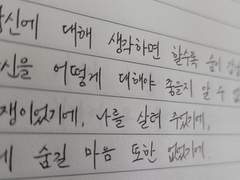 신에 대해 생각하면 할수록 숨이
신을 어떻게 대해야 좋을지 알 수 없
쟁이었기에, 나를 살려 두었기에,
게 숨길 마음 또한 없었기에.